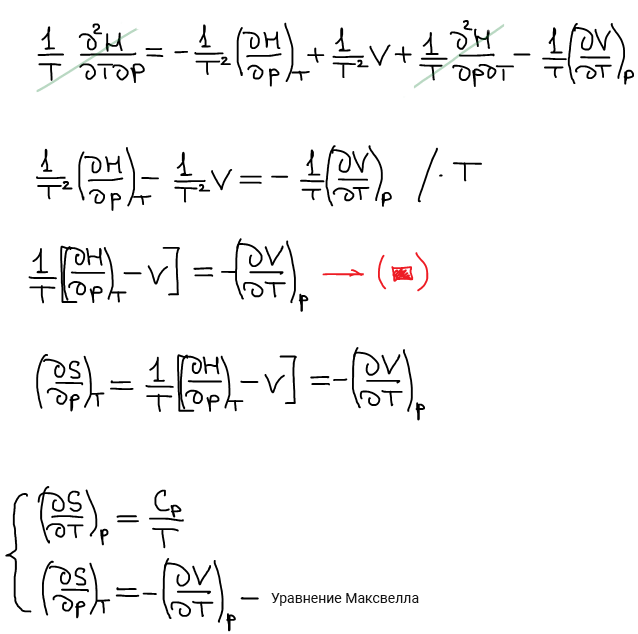 1/T ∂²H/∂T∂p = - 1/T² (∂H/∂p)_T + 1/T² V + 1/T ∂²H/∂p∂T - 1/T (∂V/∂T)_p
1/T² (∂H/∂p)_T - 1/T² V = - 1/T (∂V/∂T)_p / · T
1/T [(∂H/∂p)_T - V] = -(∂V/∂T)_p → (■)
(∂S/∂p)_T = 1/T [(∂H/∂p)_T - V] = -(∂V/∂T)_p
{ (∂S/∂T)_p = C_p/T
(∂S/∂p)_T = -(∂V/∂T)_p — Уравнение Максвелла